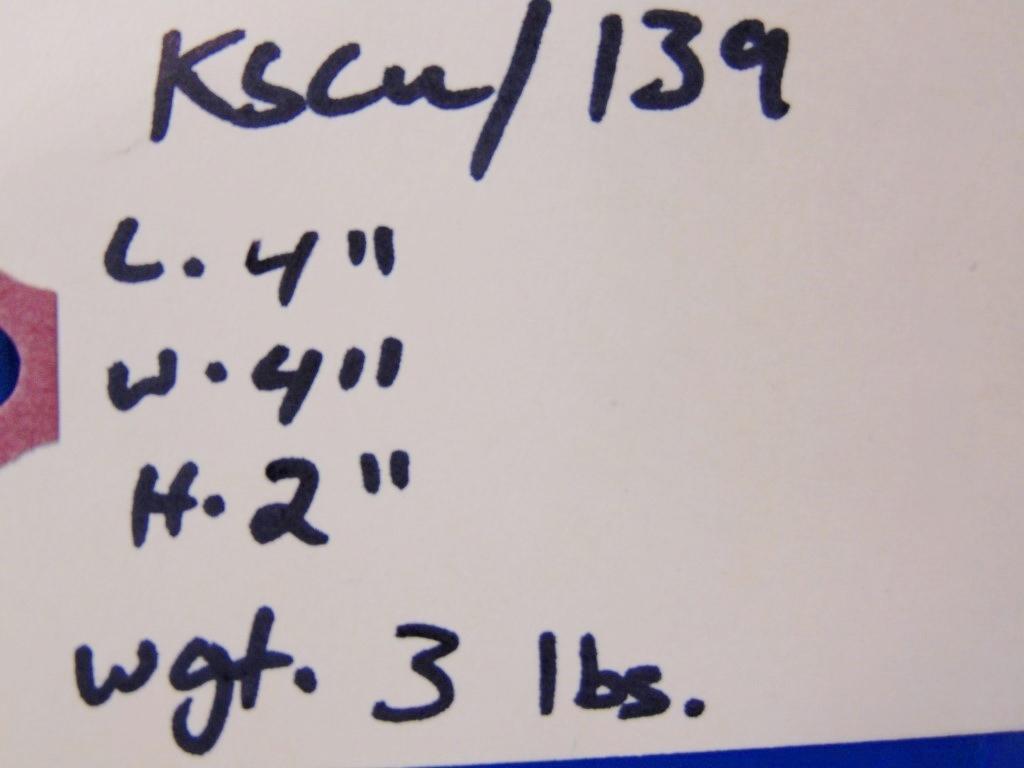 KSCU/139
L. 4"
W. 4"
H. 2"
wgt. 3 lbs.